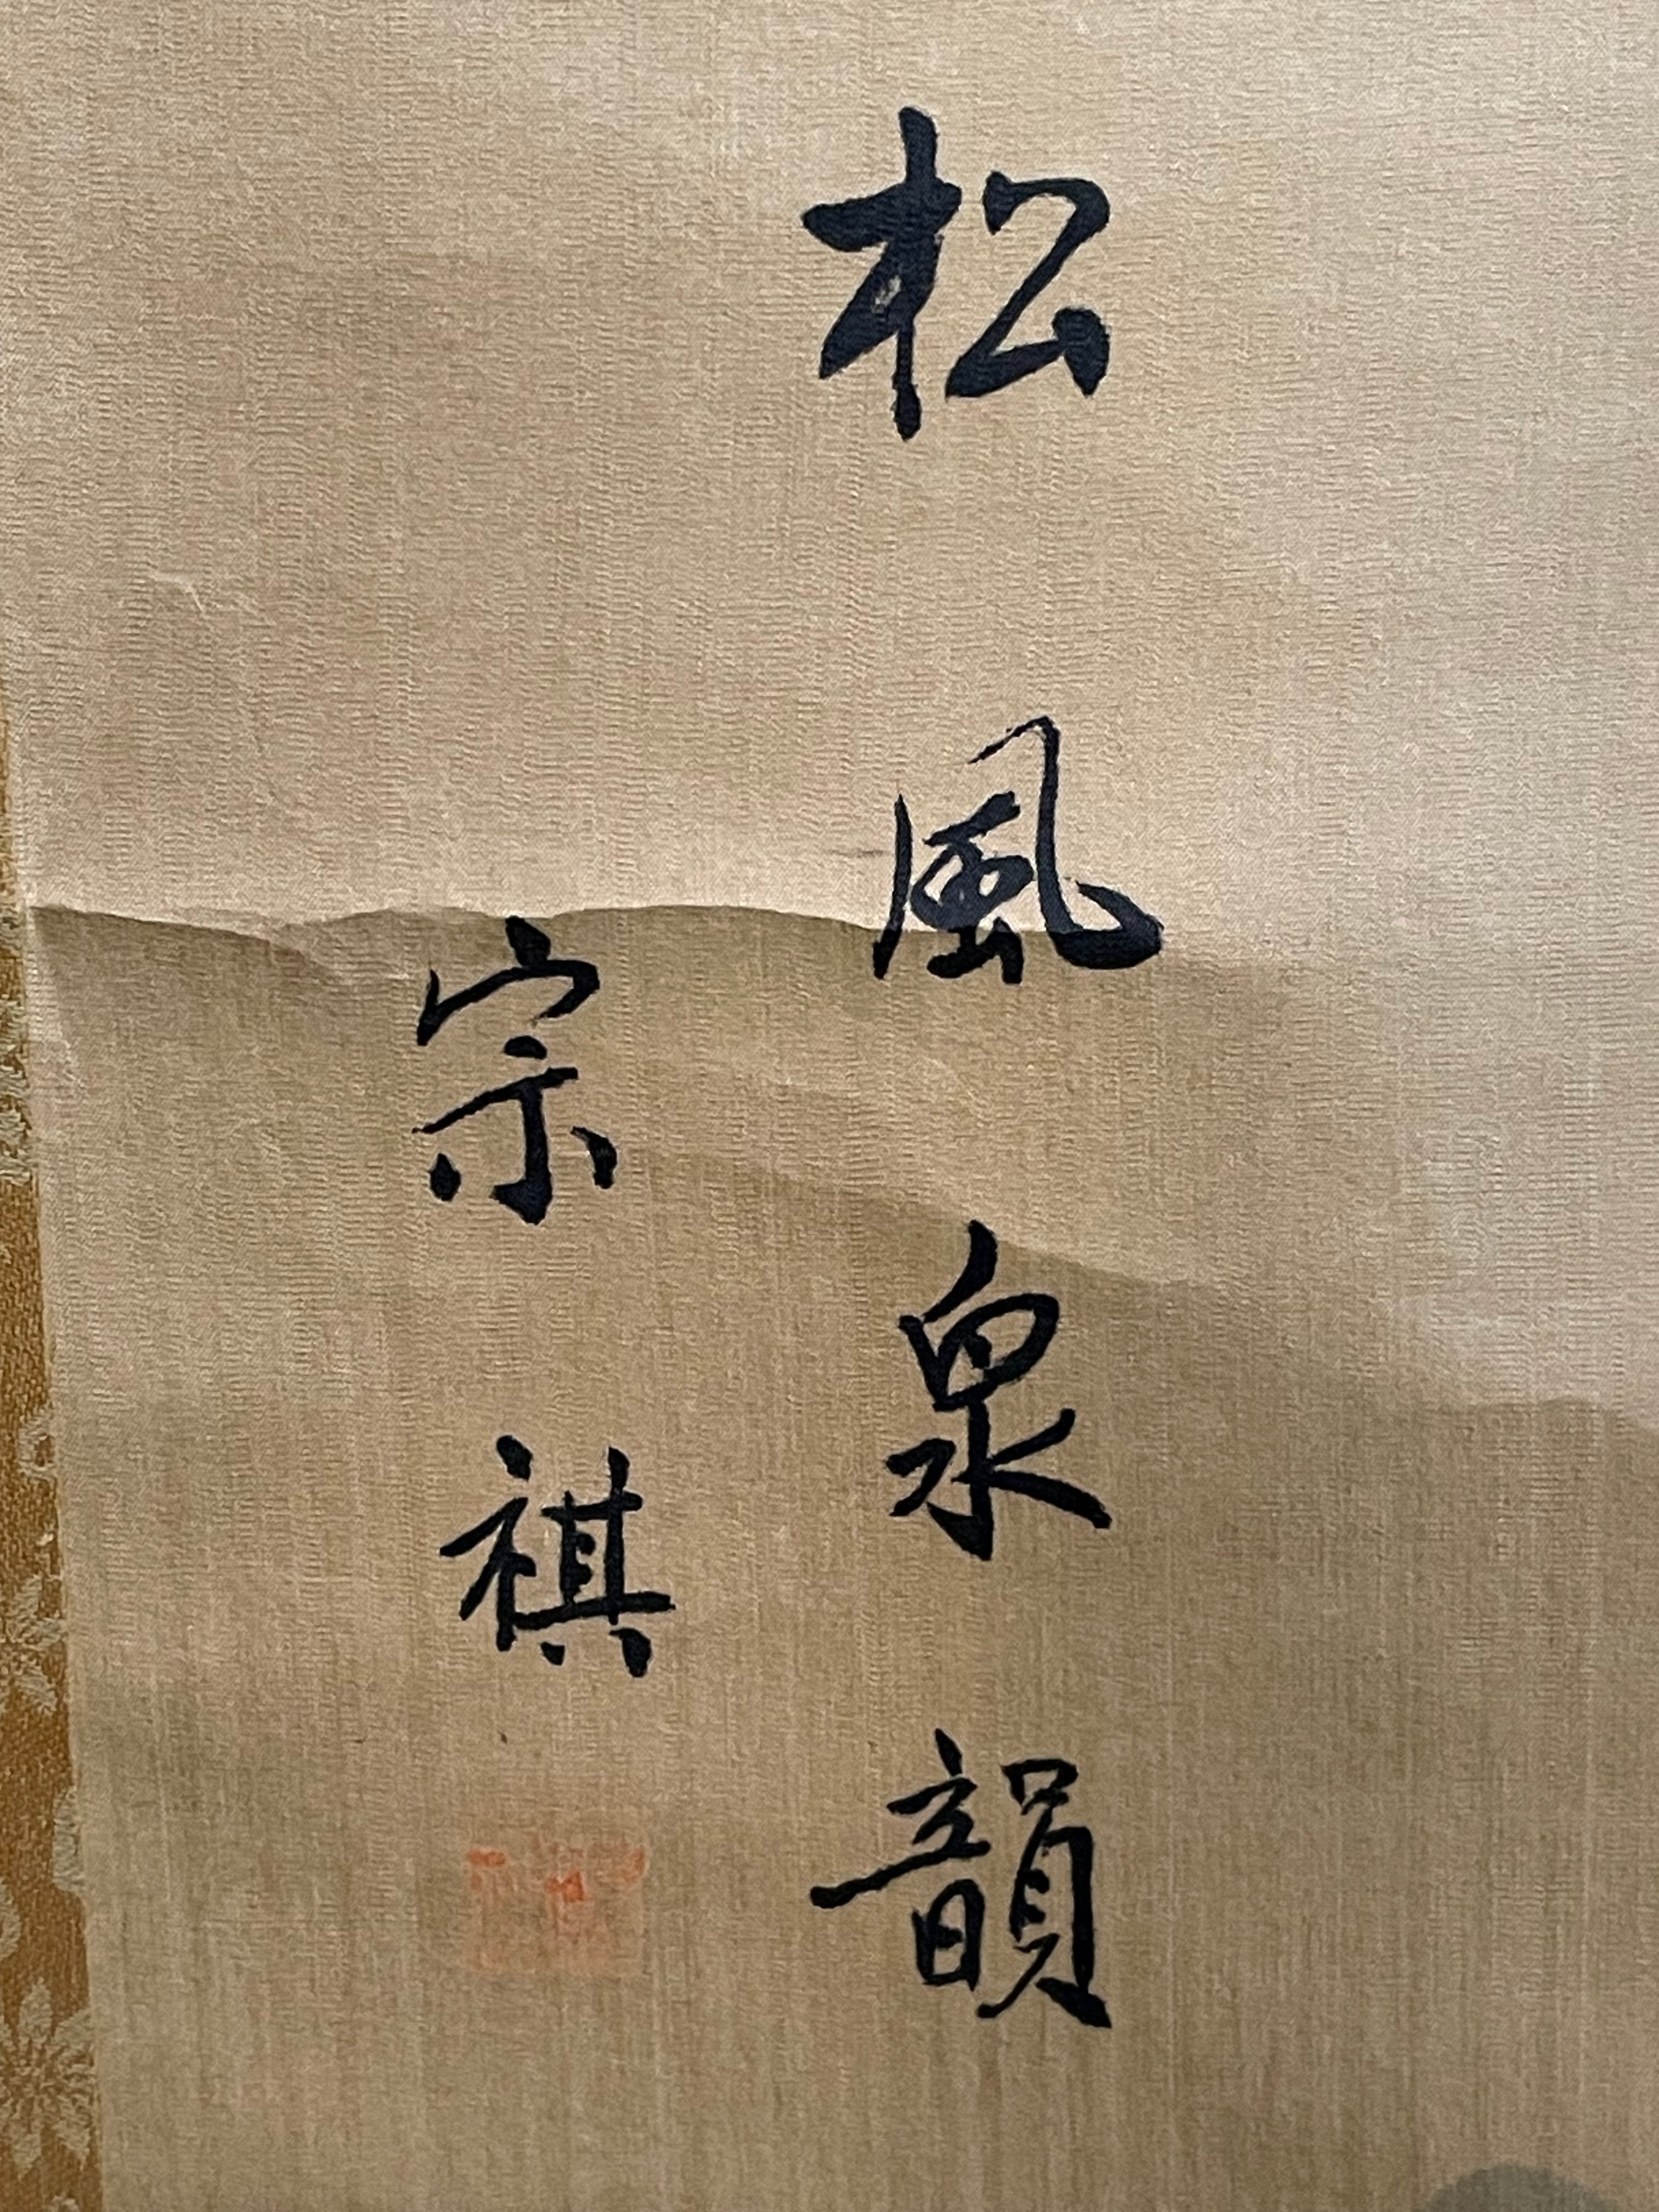 松風泉韻
宗祺